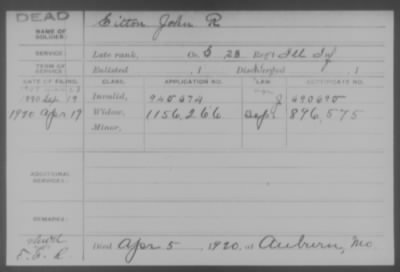 DEAD
NAME OF SOLDIER: Citton John R
SERVICE: Late rank, Co. G 28 Reg't Ill Inf
TERM OF SERVICE: Enlisted , 1 Discharged , 1
DATE OF FILING. CLASS. APPLICATION NO. LAW. CERTIFICATE NO.
1890 Sep 19 Invalid, 940674 J 690690
1920 Apr 19 Widow, 1156,266 896,575
Minor,
ADDITIONAL SERVICES:
REMARKS:
Died Apr 5, 1920, at Auburn, Mo.